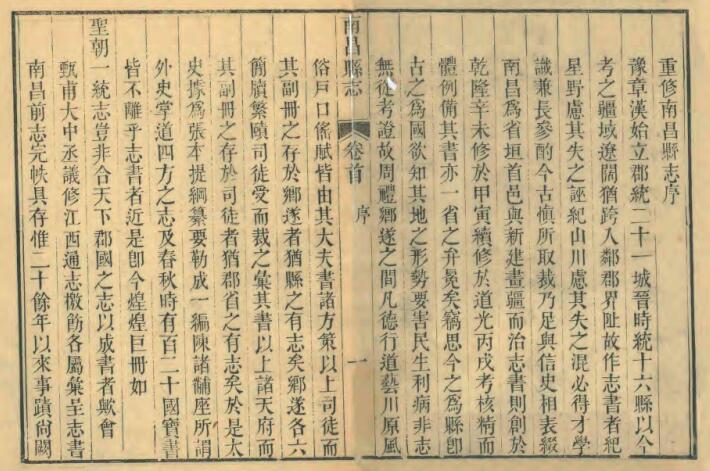 重修南昌縣志序
豫章漢始立郡統二十一城晉時統十六縣以今
考之疆域遼闊猶跨入鄰郡界址故作志書者紀
星野慮其失之誣紀山川慮其失之混必得才學
識兼長參酌今古慎所取裁乃足與信史相表綴
南昌爲省垣首邑與新建畫疆而治志書則創於
乾隆辛未修於甲寅續修於道光丙戌考核精而
體例備其書亦一省之弁冕矣竊思今之爲縣卽
古之爲國欲知其地之形勢要害民生利病非志
無從考證故周禮鄉遂之間凡德行道藝川原風
南昌縣志
卷首
序
一
俗戸口徭賦皆由其大夫書諸方策以上司徒而
其副冊之存於鄉遂者猶縣之有志矣鄉遂各六
簡牘繁賾司徒受而裁之彙其書以上諸天府而
其副冊之存於司徒者猶郡首之有志矣於是太
史據爲張本提綱纂要勒成一編陳諸黼座所謂
外史掌道四方之志及春秋時有百二十國寶書
皆不離乎志書者近是卽今煌煌巨冊如
聖朝一統志豈非合天下郡國之志以成書者歟會
甄甫大中丞議修江西通志檄飭各屬彙呈志書
南昌前志完帙具存惟二十餘年以來事蹟尚闕